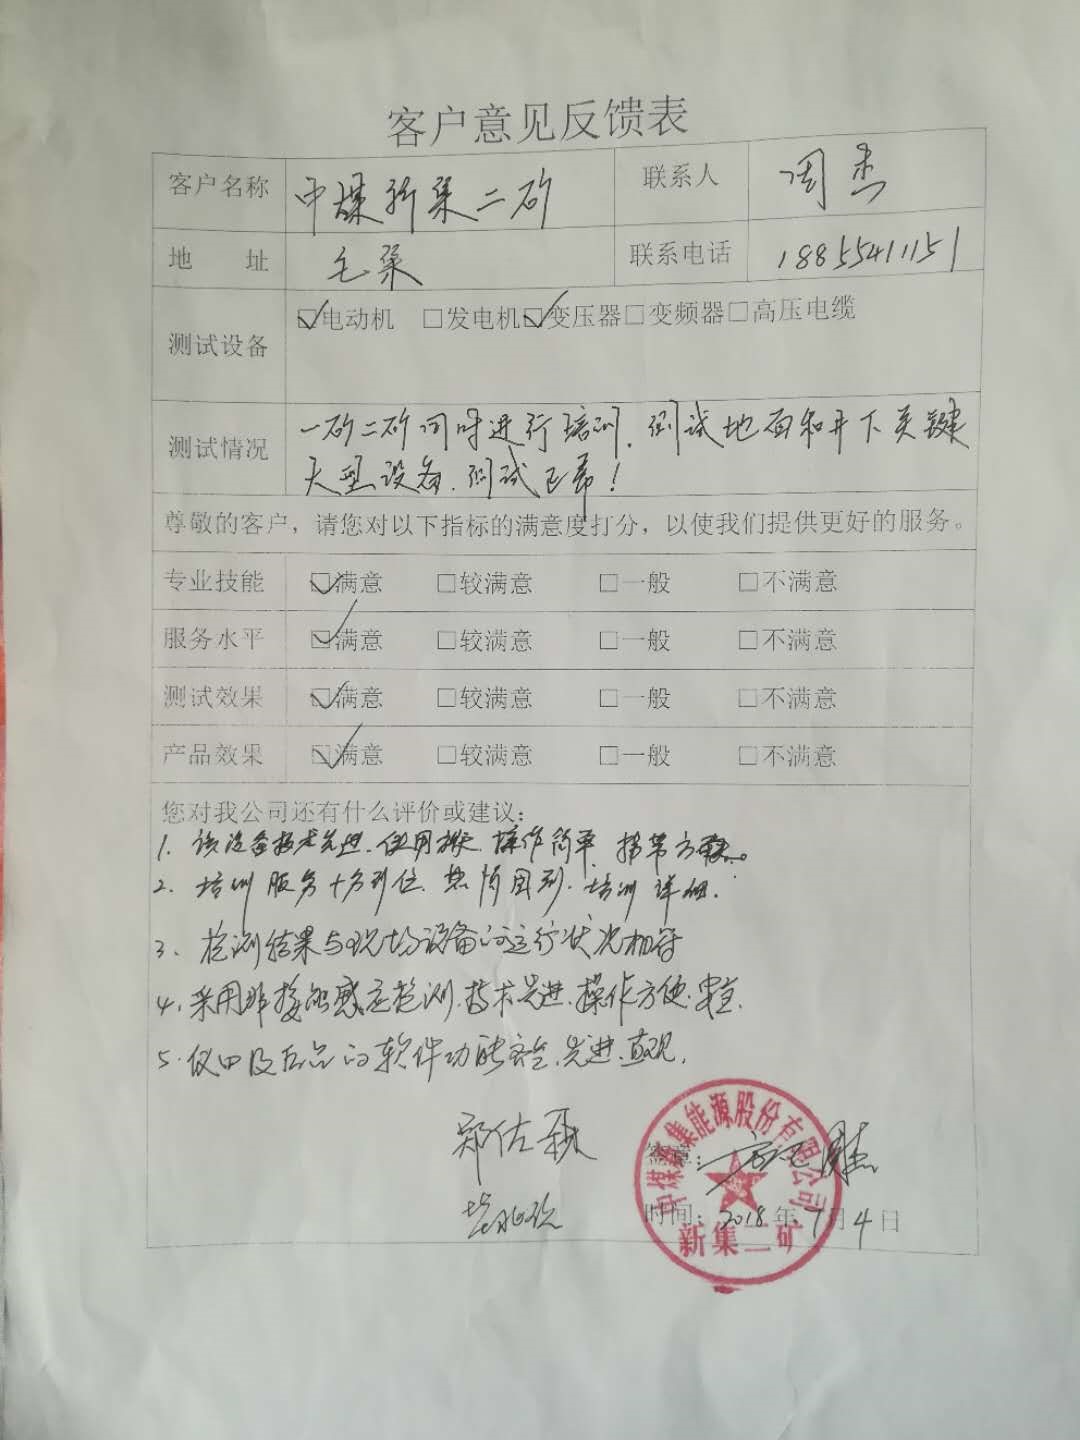 客户意见反馈表
客户名称 中煤新集二矿 联系人 周杰
地 址 毛集 联系电话 18855411151
测试设备 ☑电动机 □发电机 ☑变压器 □变频器 □高压电缆
测试情况 一矿二矿同时进行培训，测试地面和井下关键
大型设备，测试正常！
尊敬的客户，请您对以下指标的满意度打分，以使我们提供更好的服务。
专业技能 ☑满意 □较满意 □一般 □不满意
服务水平 ☑满意 □较满意 □一般 □不满意
测试效果 ☑满意 □较满意 □一般 □不满意
产品效果 ☑满意 □较满意 □一般 □不满意
您对我公司还有什么评价或建议：
1、该设备技术先进，使用 操作简单，携带方便。
2、培训服务十分到位，热情周到，培训详细．
3、检测结果与现场设备的运行状况相符
4、采用非接触感应检测，技术先进，操作方便，
5、 的软件功能齐全，先进，直观．
签章：
时间：2018年 月4日
中煤新集能源股份有限公司
新集二矿